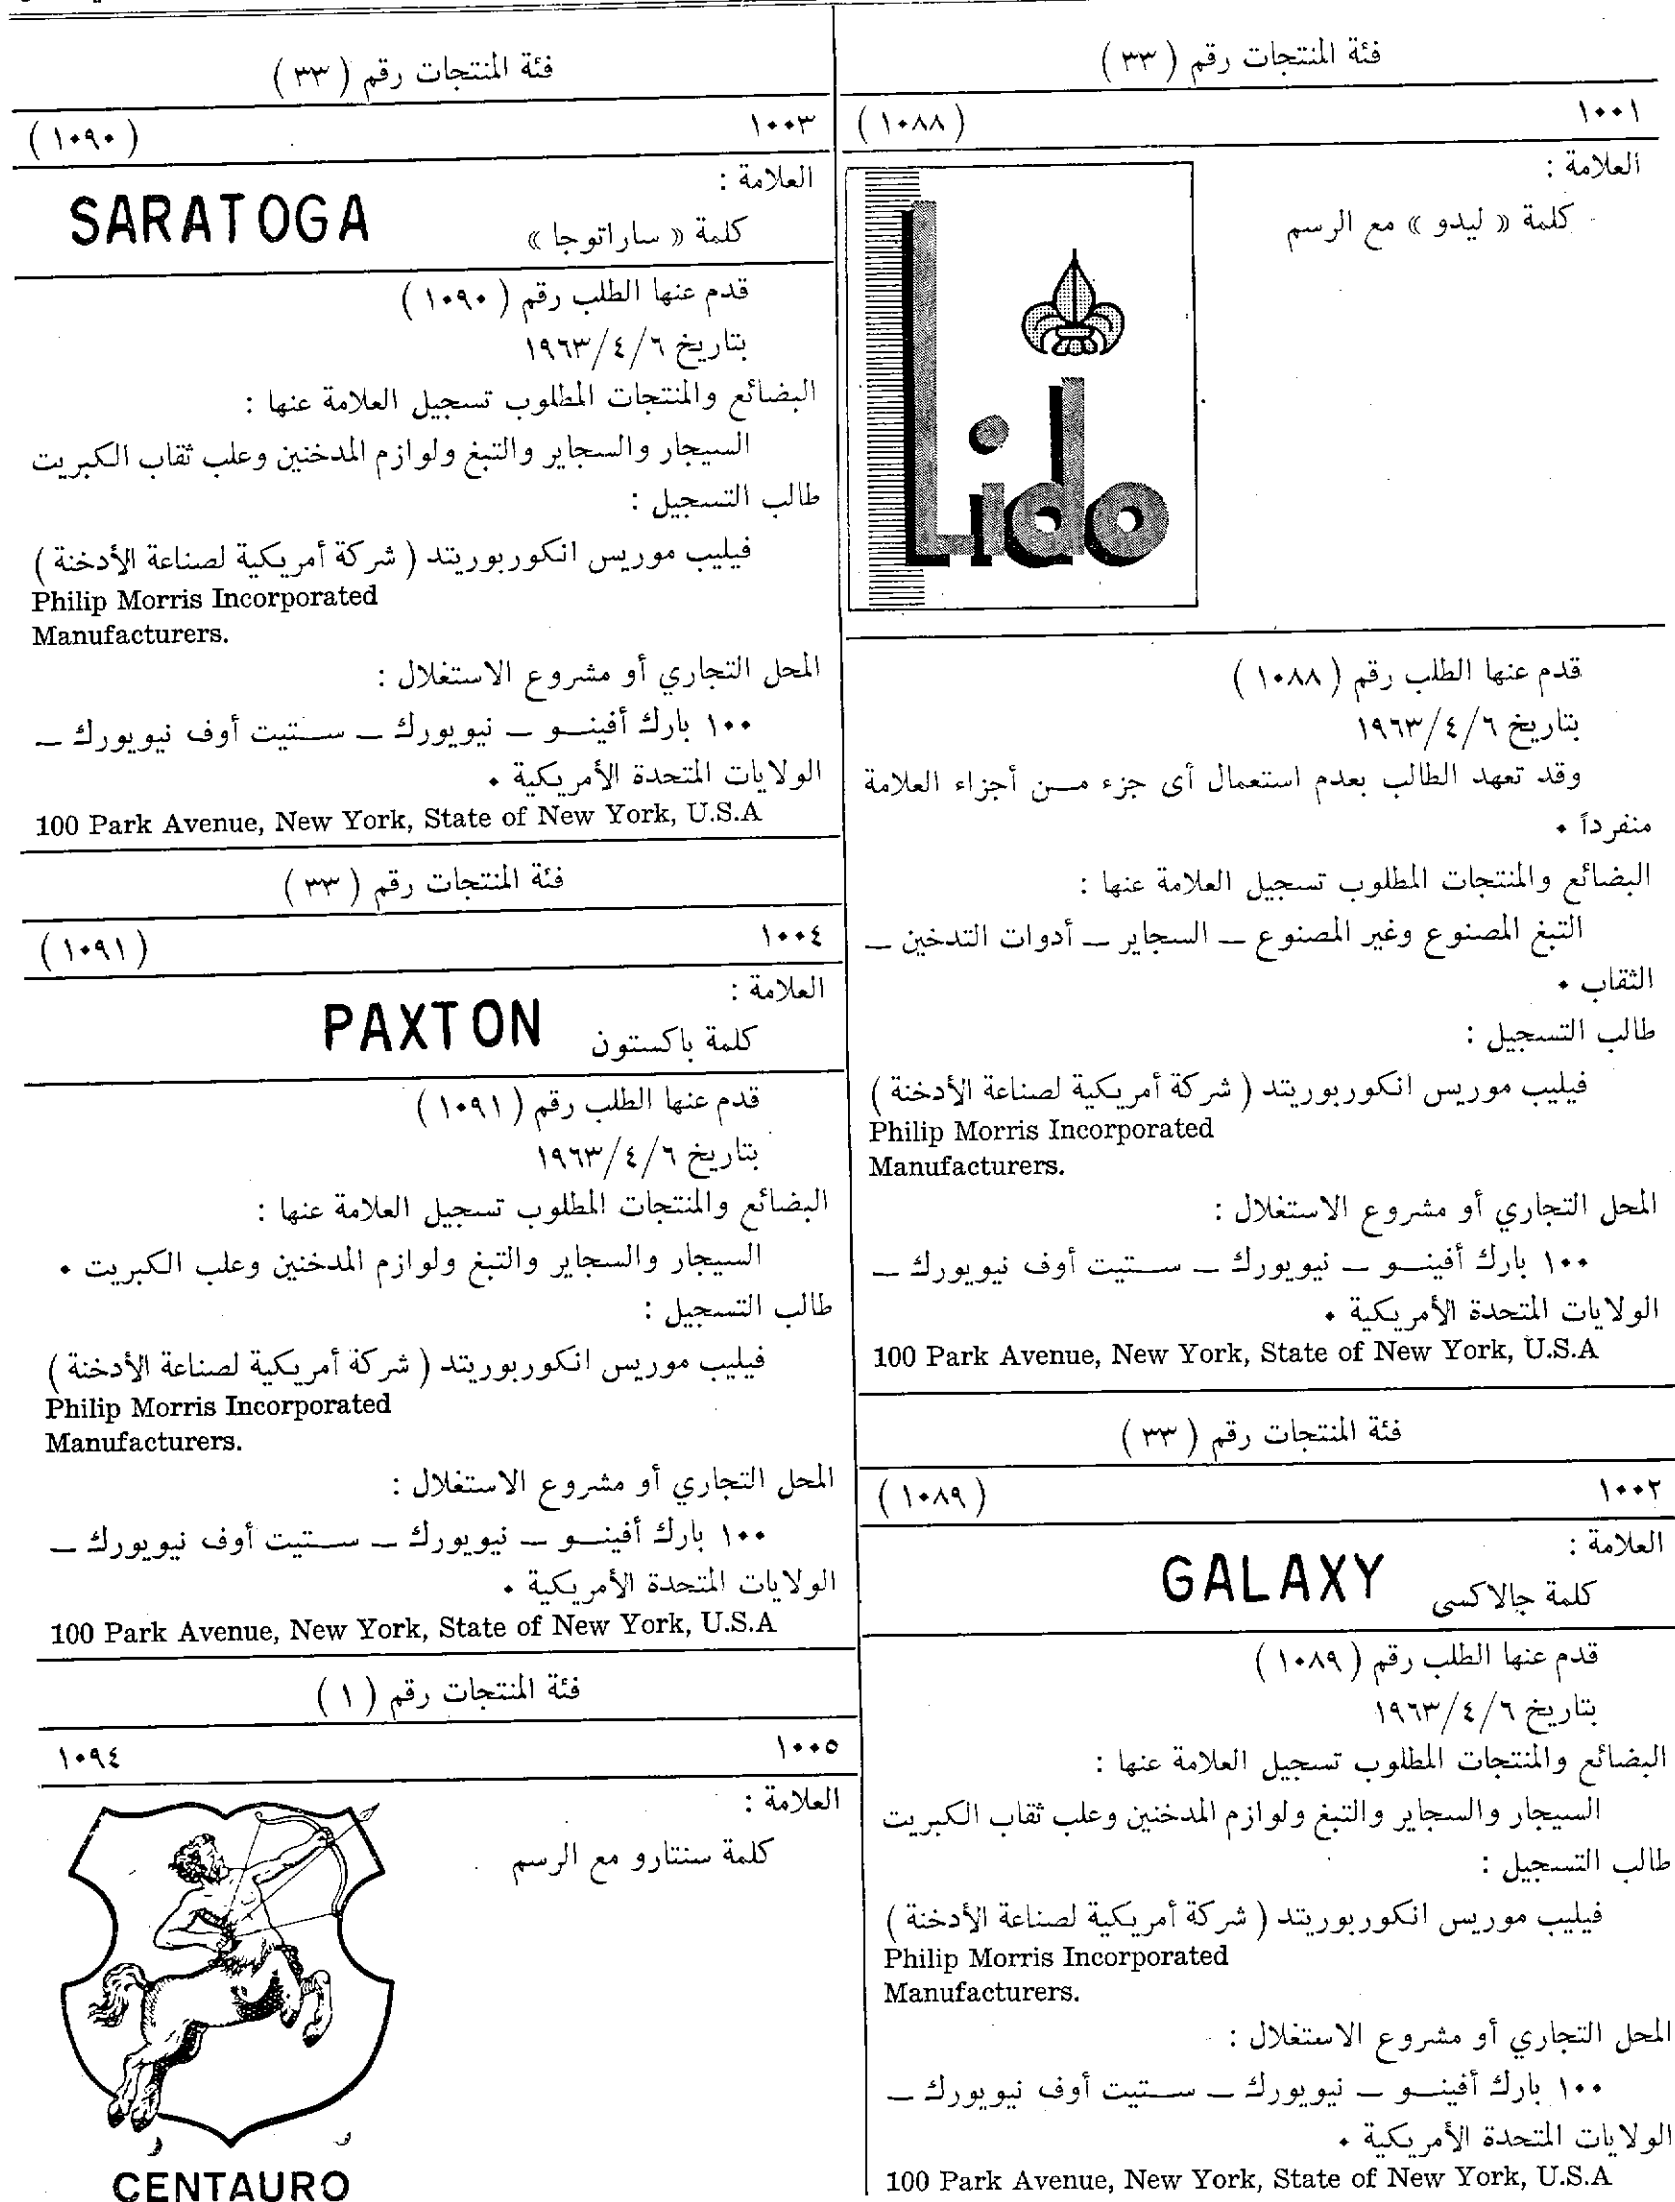 فئة المنتجات رقم ( ٣٣ )
١٠٠١ ( ١٠٨٨ )
العلامة :
كلمة « ليدو » مع الرسم
Lido
قدم عنها الطلب رقم ( ١٠٨٨ )
بتاريخ ١٩٦٣/٤/٦
وقد تعهد الطالب بعدم استعمال أى جزء مـن أجزاء العلامة
منفرداً ٠
البضائع والمنتجات المطلوب تسجيل العلامة عنها :
التبغ المصنوع وغير المصنوع ــ السجاير ــ أدوات التدخين ــ
الثقاب ٠
طالب التسجيل :
فيليب موريس انكوربوريتد ( شركة أمريكية لصناعة الأدخنة )
Philip Morris Incorporated
Manufacturers.
المحل التجاري أو مشروع الاستغلال :
١٠٠ بارك أفينـو ــ نيويورك ــ سـتيت أوف نيويورك ــ
الولايات المتحدة الأمريكية ٠
100 Park Avenue, New York, State of New York, U.S.A
فئة المنتجات رقم ( ٣٣ )
١٠٠٢ ( ١٠٨٩ )
العلامة :
كلمة جالاكسى GALAXY
قدم عنها الطلب رقم ( ١٠٨٩ )
بتاريخ ١٩٦٣/٤/٦
البضائع والمنتجات المطلوب تسجيل العلامة عنها :
السيجار والسجاير والتبغ ولوازم المدخنين وعلب ثقاب الكبريت
طالب التسجيل :
فيليب موريس انكوربوريتد ( شركة أمريكية لصناعة الأدخنة )
Philip Morris Incorporated
Manufacturers.
المحل التجاري أو مشروع الاستغلال :
١٠٠ بارك أفينـو ــ نيويورك ــ سـتيت أوف نيويورك ــ
الولايات المتحدة الأمريكية ٠
100 Park Avenue, New York, State of New York, U.S.A
فئة المنتجات رقم ( ٣٣ )
١٠٠٣ ( ١٠٩٠ )
العلامة :
كلمة « ساراتوجا » SARATOGA
قدم عنها الطلب رقم ( ١٠٩٠ )
بتاريخ ١٩٦٣/٤/٦
البضائع والمنتجات المطلوب تسجيل العلامة عنها :
السيجار والسجاير والتبغ ولوازم المدخنين وعلب ثقاب الكبريت
طالب التسجيل :
فيليب موريس انكوربوريتد ( شركة أمريكية لصناعة الأدخنة )
Philip Morris Incorporated
Manufacturers.
المحل التجاري أو مشروع الاستغلال :
١٠٠ بارك أفينـو ــ نيويورك ــ سـتيت أوف نيويورك ــ
الولايات المتحدة الأمريكية ٠
100 Park Avenue, New York, State of New York, U.S.A
فئة المنتجات رقم ( ٣٣ )
١٠٠٤ ( ١٠٩١ )
العلامة :
كلمة باكستون PAXTON
قدم عنها الطلب رقم ( ١٠٩١ )
بتاريخ ١٩٦٣/٤/٦
البضائع والمنتجات المطلوب تسجيل العلامة عنها :
السيجار والسجاير والتبغ ولوازم المدخنين وعلب الكبريت ٠
طالب التسجيل :
فيليب موريس انكوربوريتد ( شركة أمريكية لصناعة الأدخنة )
Philip Morris Incorporated
Manufacturers.
المحل التجاري أو مشروع الاستغلال :
١٠٠ بارك أفينـو ــ نيويورك ــ سـتيت أوف نيويورك ــ
الولايات المتحدة الأمريكية ٠
100 Park Avenue, New York, State of New York, U.S.A
فئة المنتجات رقم ( ١ )
١٠٠٥ ١٠٩٤
العلامة :
كلمة سنتارو مع الرسم
CENTAURO